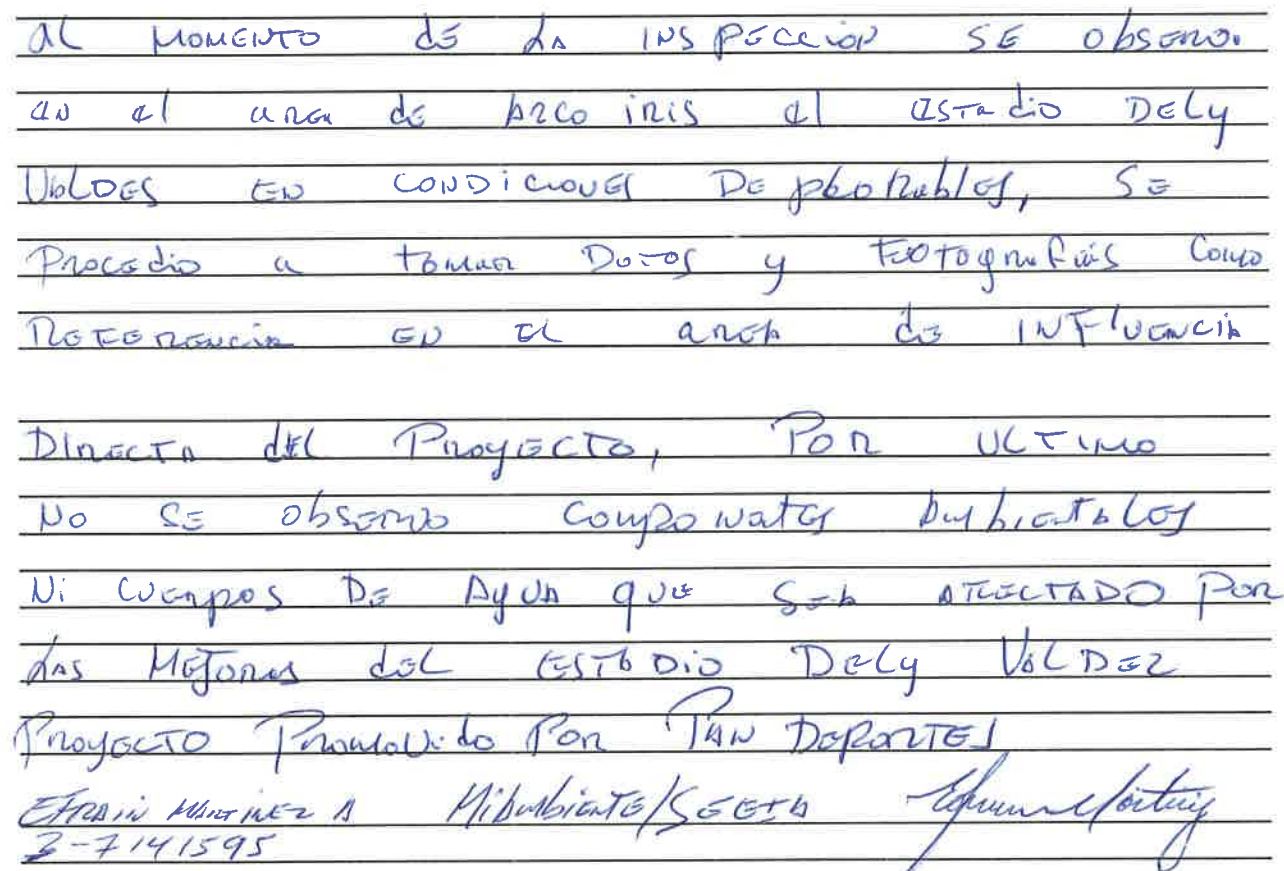 al MOMENTO de LA INSPECCION SE Observo.
en el area de Arco iris el estadio DELy
VALDES EN CONDICIONES Deplorables, SE
Procedio a tomar Datos y Fotografias Como
REFERENCIA EN EL area de INFLUENCIA
DIRECTA del Proyecto, Por ULTIMO
No SE observo Componates Ambientales
Ni Cuerpos De AgUA que SEA AFECTADO Por
LAS MEJORAS del ESTADIO DELy VALDEZ
Proyecto Promovido Por PAN DEPORTES
EFRAIN MARTINEZ A MiAmbiente/SEEIA
3-7141595